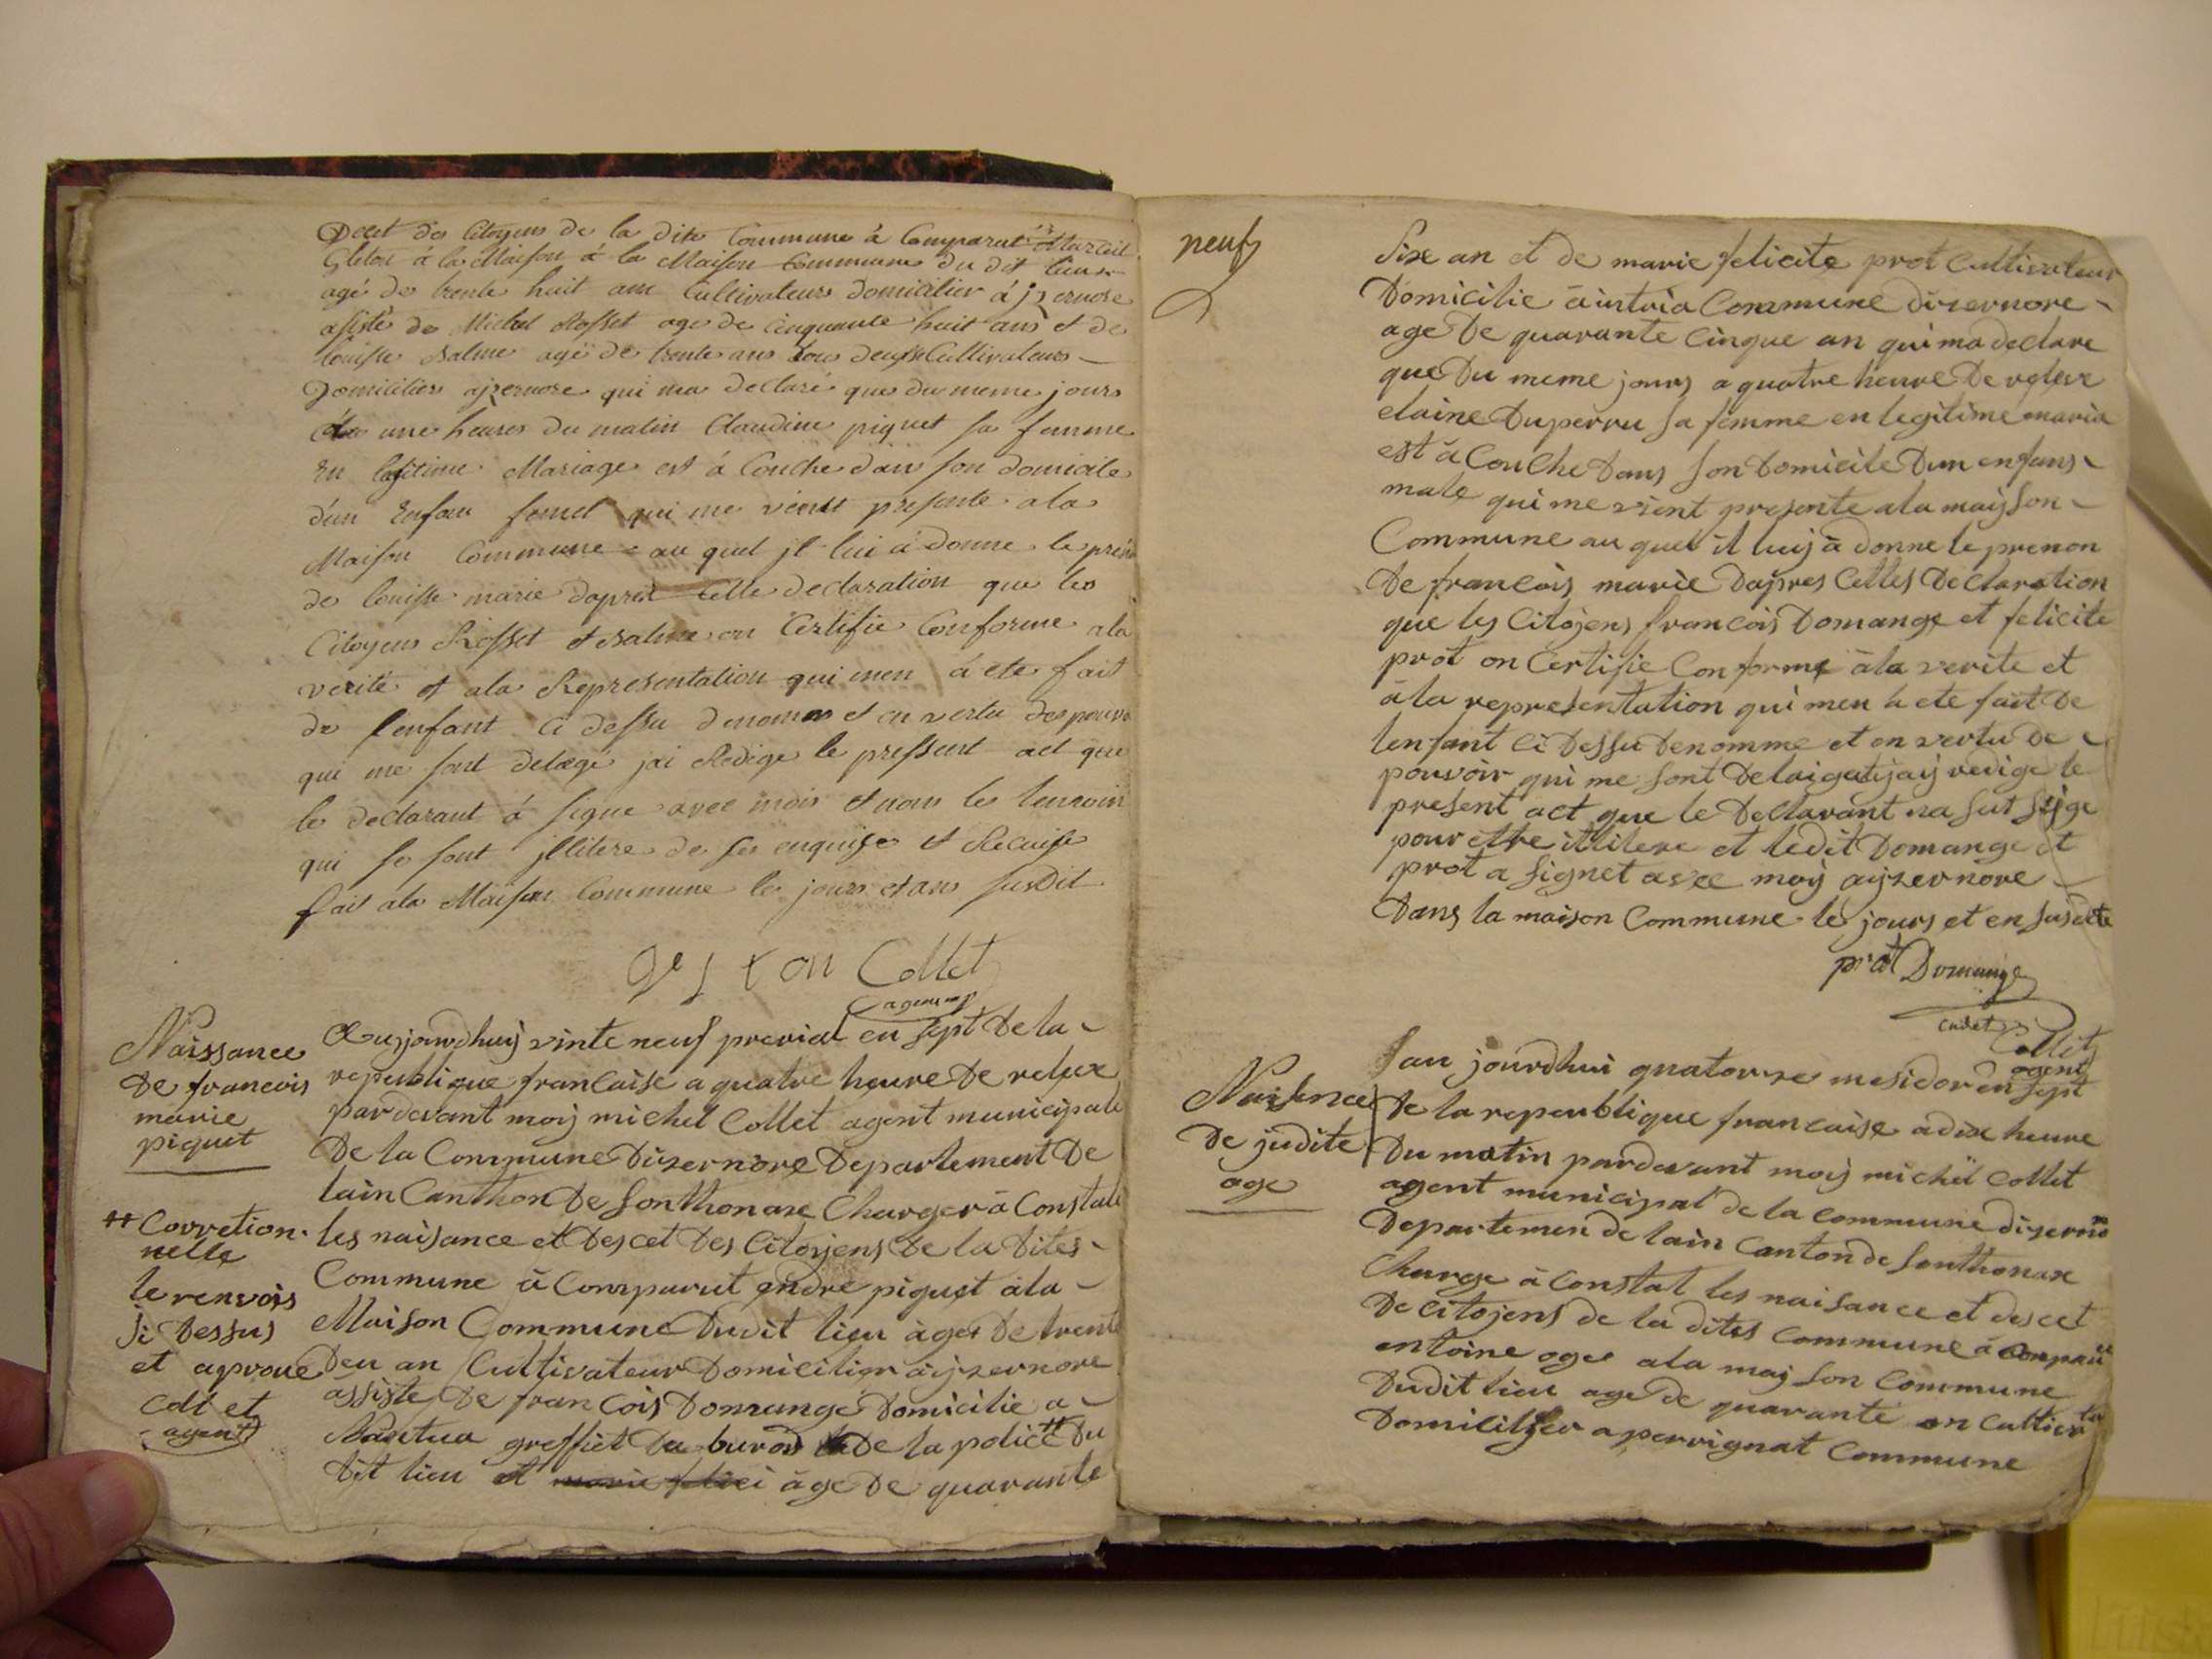 Decet des Citoyens de la dite Commune à Comparut
à la Maison à la Maison Commune du dit lieu
agé de trente huit ans Cultivateurs domicilier à jzernore
asisté de Michel Rosset age de Cinquante huit ans et de
louisse agë de trente ans tous deux Cultivateurs
Domicilier ajzernore qui ma declaré que du meme jours
à une heures du matin Claudine piquet sa femme
En legitime Mariage est à Couche dan son domicile
d'un Enfan femel qui me vient presente ala
Maison Commune au quel jl lui à donne le
de louisse marie daprés Celle declaration que les
Citoyens Rosset et on Certifie Conforme ala
verité et ala Representation qui men à ete fait
de l'enfant Ci dessu et en vertu des
qui me sont delegé jai Redige le pressent act que
le declarant à signe avec mois et non les temoin
qui se sont jllitere de Ses enquise et Recuise
fait ala Maison Commune les jours et ans susdit
Collet
agent
Naissance
de francois
marie
piquet
Aujourdhuij vinte neuf prerial en sept de la
republique francaise a quatre heure de relux
pardevant moij michel Collet agent municipale
De la Commune Dizernore Departement De
lain Canthon de Sonthonaxe Charger à Constate
les naisance et Descet Des Citoijens De la Dites
Commune à Comparut endre piquet àla
Maison Commune Dudit lieu àger De trente
Deu an Cultivateur Domicilier àijzernore
assiste De francois Domange Domicilie a
Nantua greffiet Du buros De la police ++ Du
Dit lieu et marie felici àge De quarante
++ Corretion
nelle
le renvois
si Dessus
et aprouve
agent
neufs
Sixe an et de marie felicite prot Cultivateur
Domicilie à intria Commune dizernore
age De quarante Cinque an qui ma declare
que Du meme jours a quatre heure De relexe
elaine Duperru sa femme en legitime maria
est à Couche Dans son Domicile Dun enfans
male qui me vient presente ala maijson
Commune au quel il luij à donne le prenon
De francois marie Dapres Celles Declaration
que les Citojens francois Domange et felicite
prot on Certifie Conforme àla verite et
à la representation qui men à ete fait De
lenfant Ci Dessu Denomme et en vertu De
pouvoir qui me sont jaij redige le
present act que le Declarant na sut sijge
pour ettre illitere et ledit Domange et
prot a signet avec moij aijzernore
Dans la maison Commune le jours et en susdite
prot Domange
cadet
Collet
agent
Naisence
De judite
oge
Sau jourdhui quatorze mesidor en sept
De la repeublique francaise adixe heure
Du matin pardevant moij michel Collet
agent municipal de la commune dizernore
Departemen de lain Canton de Sonthonaxe
Charge à Constat les naisance et descet
De citojens de la dites Commune à
antoine oger ala maijson Commune
Dudit lieu age de quarante an
Domicilier aperrignat Commune